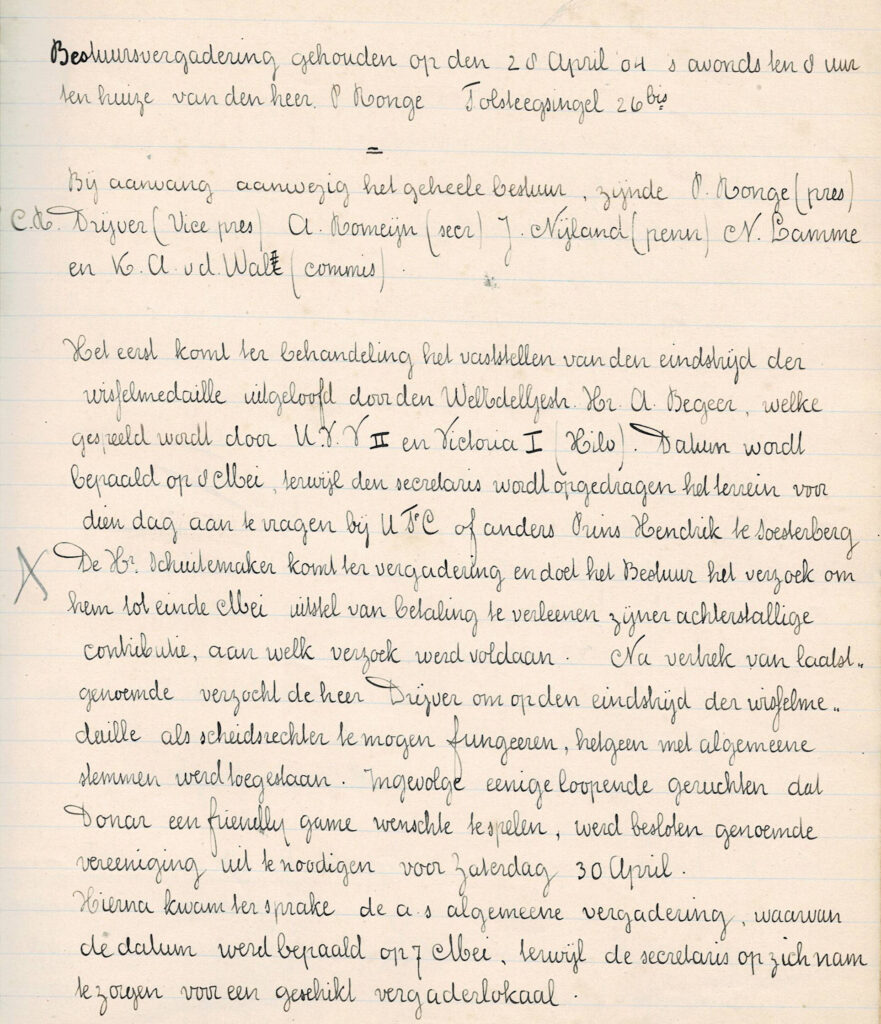 Bestuursvergadering gehouden op den 28 April '04 's avonds ten 8 uur
ten huize van den heer. P Ronge Tolsteegsingel 26 bis
=
Bij aanvang aanwezig het geheele bestuur, zijnde P. Ronge (pres)
C.R. Drijver (Vice pres) A. Romeijn (secr) J. Nijland (penn) N. Lamme
en K. A. v d. Walt (commis).
Het eerst komt ter behandeling het vaststellen van den eindstrijd der
wisselmedaille uitgeloofd door den WelEdelGestr. Hr. A. Begeer, welke
gespeeld wordt door U.V.V II en Victoria I (Hilv). Datum wordt
bepaald op 8 Mei, terwijl den secretaris wordt opgedragen het terrein voor
dien dag aan te vragen bij U F C of anders Prins Hendrik te Soesterberg
X De Hr. Schuitemaker komt ter vergadering en doet het Bestuur het verzoek om
hem tot einde Mei uitstel van betaling te verleenen zijner achterstallige
contributie, aan welk verzoek werd voldaan. Na vertrek van laatst„
genoemde verzocht de heer Drijver om op den eindstrijd der wisselme„
daille als scheidsrechter te mogen fungeeren, hetgeen met algemeene
stemmen werd toegestaan. Ingevolge eenige loopende geruchten dat
Donar een friendly game wenschte te spelen, werd besloten genoemde
vereeniging uit te noodigen voor Zaterdag 30 April.
Hierna kwam ter sprake de a.s algemeene vergadering, waarvan
de datum werd bepaald op 7 Mei, terwijl de secretaris op zich nam
te zorgen voor een geschikt vergaderlokaal.